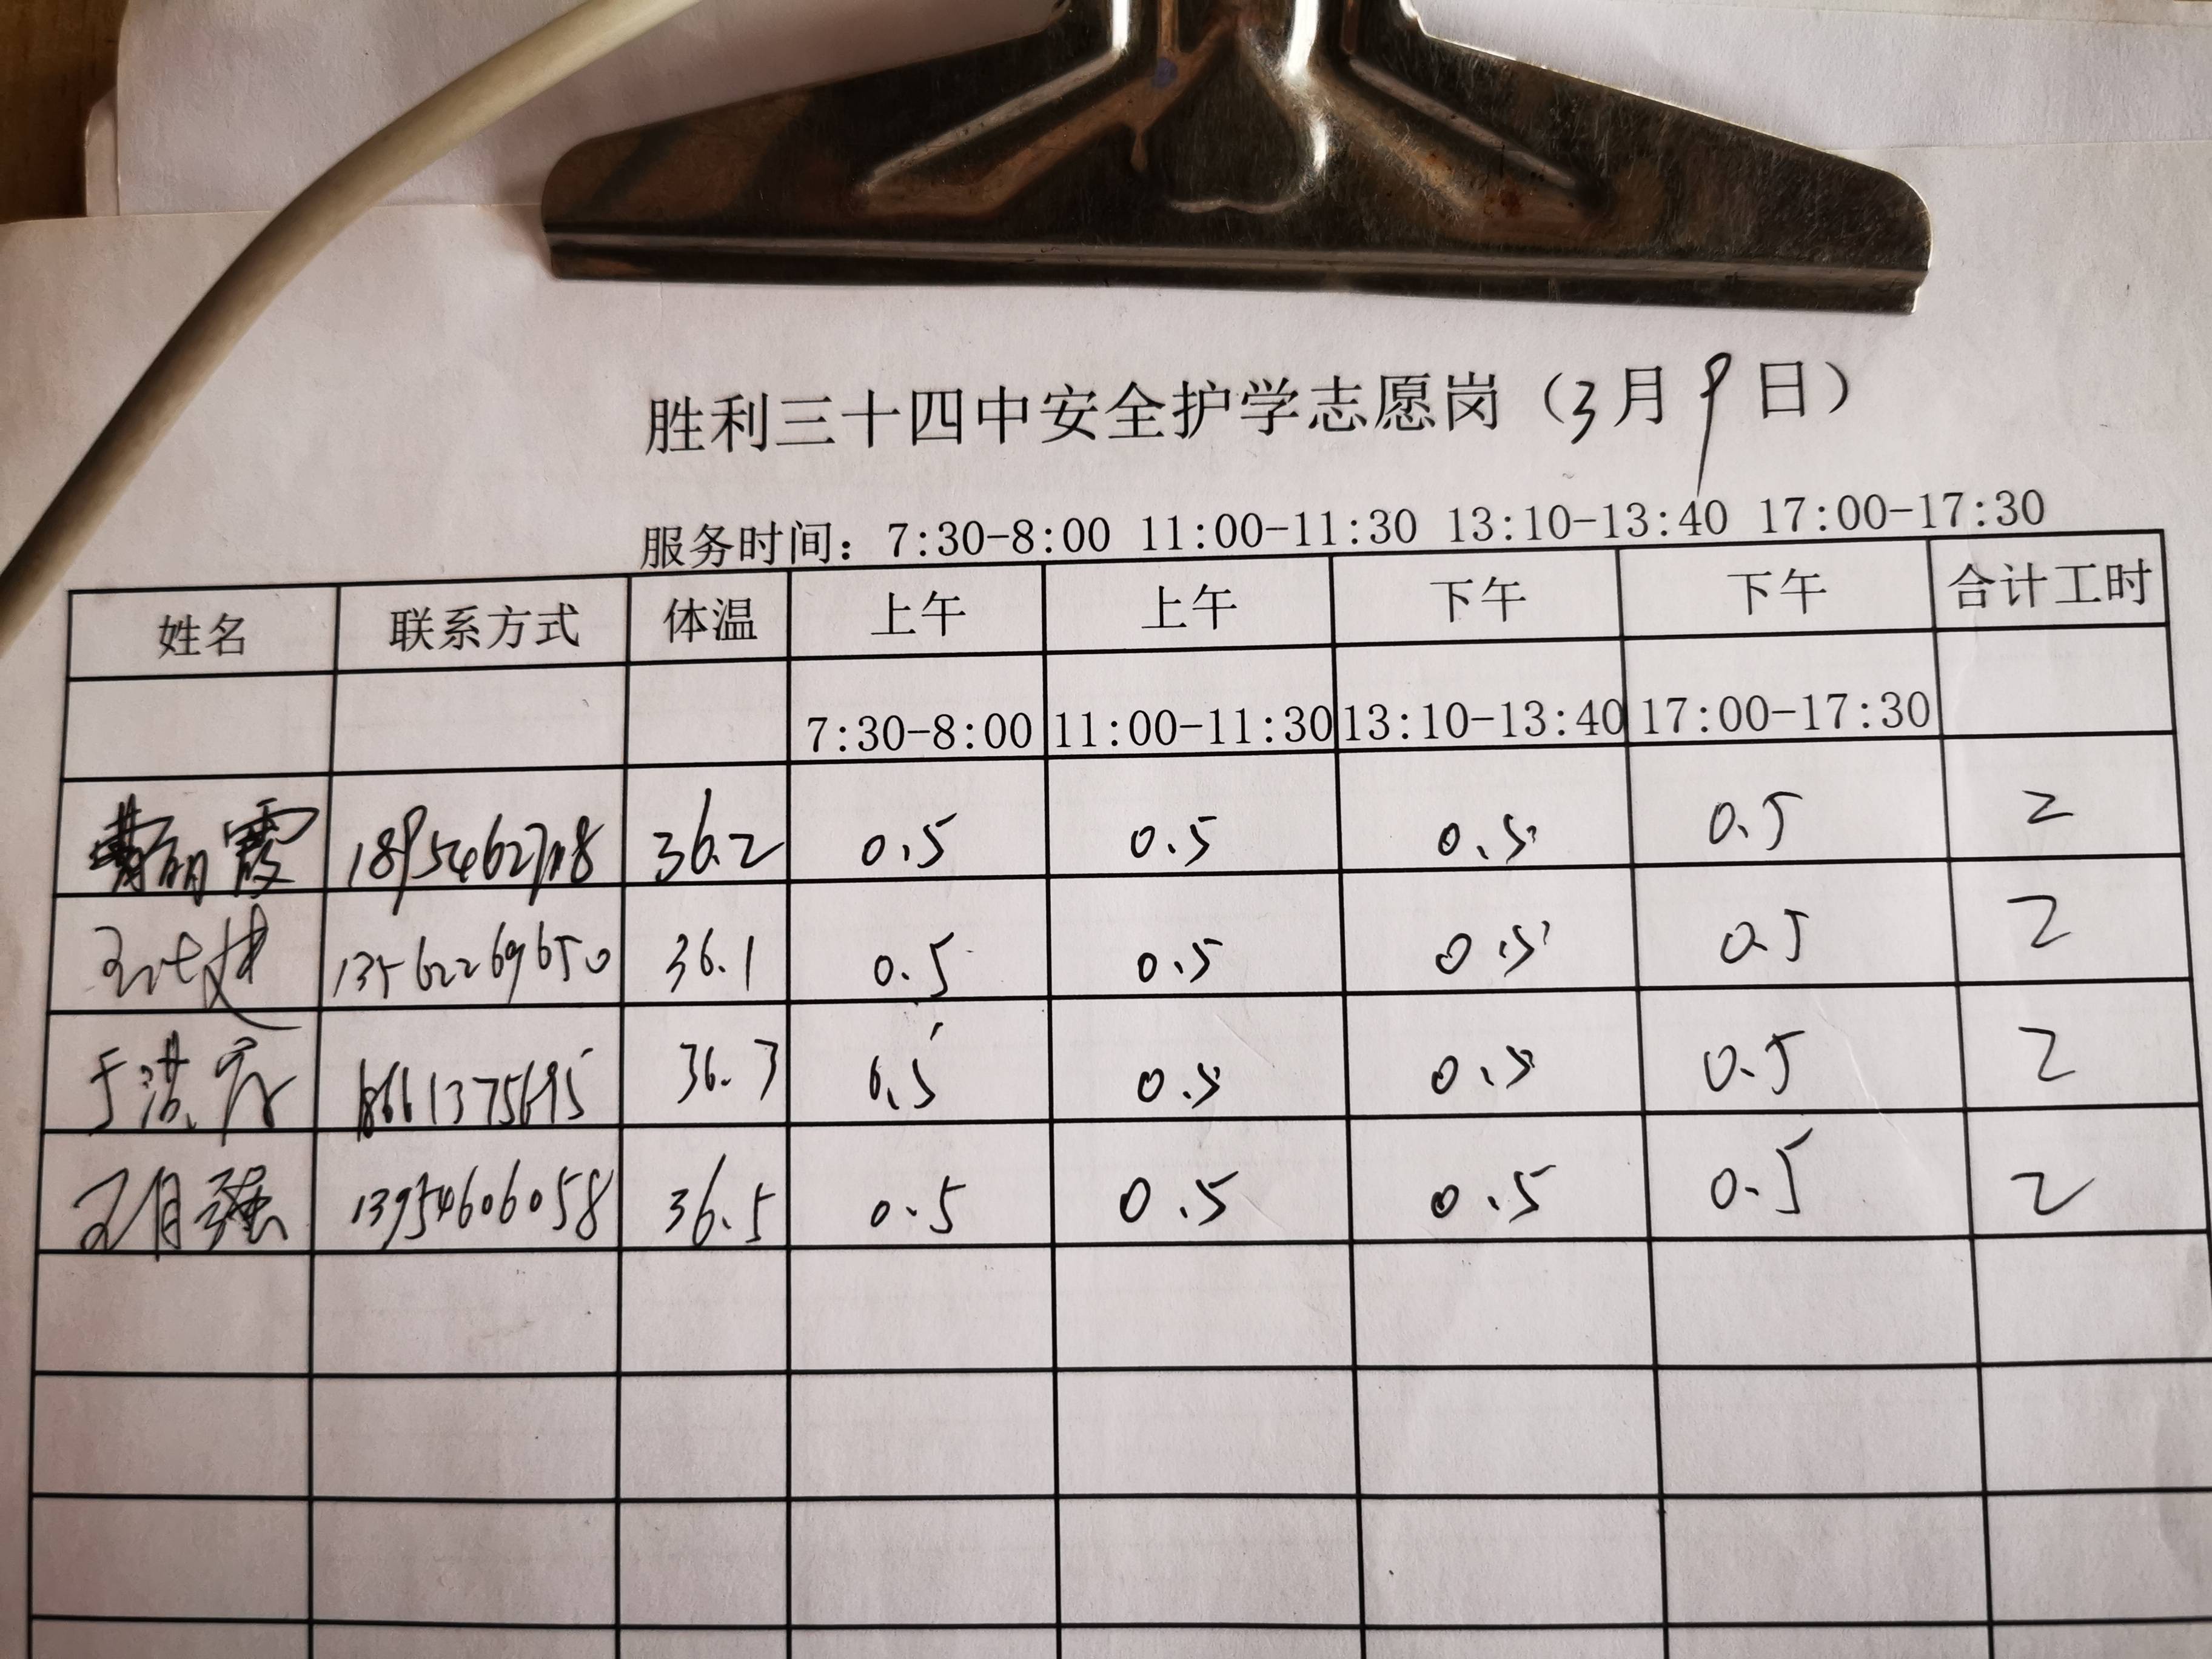 胜利三十四中安全护学志愿岗（3月9日）
服务时间：7:30-8:00 11:00-11:30 13:10-13:40 17:00-17:30
姓名 联系方式 体温 上午 上午 下午 下午 合计工时
7:30-8:00 11:00-11:30 13:10-13:40 17:00-17:30
霞 36.2 0.5 0.5 0.5 0.5 2
13562269650 36.1 0.5 0.5 0.5 0.5 2
于洪 36.3 0.5 0.5 0.5 0.5 2
王月强 13954606058 36.5 0.5 0.5 0.5 0.5 2